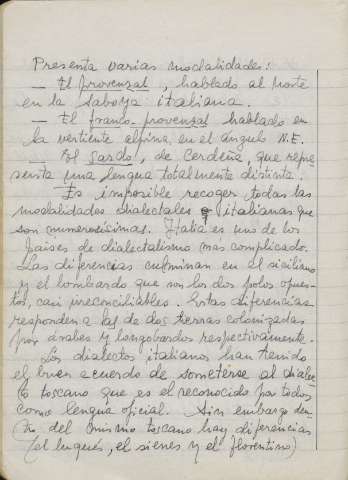 Presenta varias modalidades:
— El provenzal, hablado al norte
en la Saboya italiana.
— El franco provenzal hablado en
la vertiente alpina, en el ángulo N.E.
— El sardo, de Cerdeña, que repre
senta una lengua totalmente distinta.
Es imposible recoger todas las
modalidades dialectales italianas que
son numerosísimas. Italia es uno de los
países de dialectalismo mas complicado.
Las diferencias culminan en el siciliano
y el lombardo que son los dos polos opues-
tos, casi irreconciliables. Estas diferencias
responden a las de dos tierras colonizadas
por árabes y longobardos respectivamente.
Los dialectos italianos han tenido
el buen acuerdo de someterse al dialec
to toscano que es el reconocido por todos
como lengua oficial. Sin embargo den-
tro del mismo toscano hay diferencias
(el luqués, el sienes y el florentino)